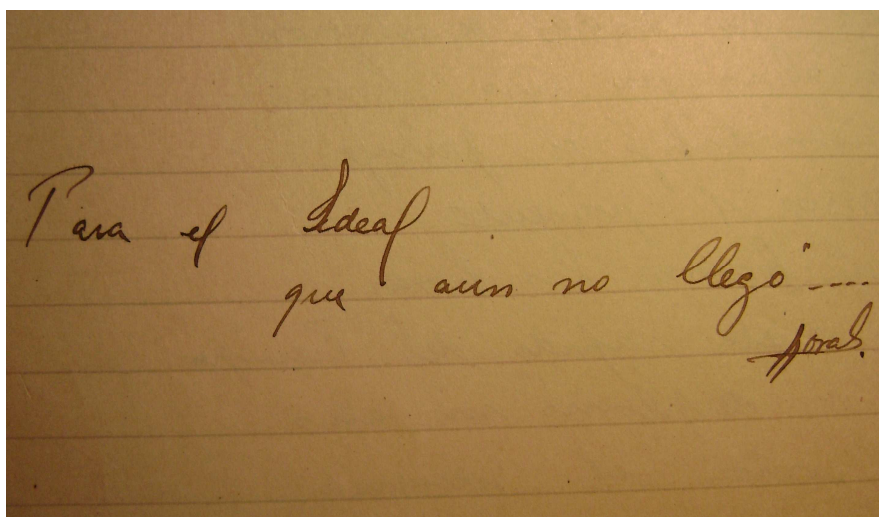 Para el Ideal
que aun no llegó....